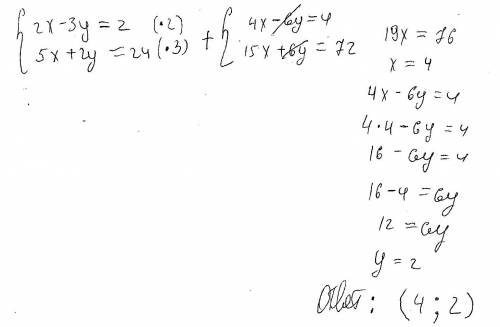 { 2x-3y=2 (·2)
5x+2y=24 (·3)
+ { 4x-6y=4
15x+6y=72
19x=76
x=4
4x-6y=4
4·4-6y=4
16-6y=4
16-4=6y
12=6y
y=2
Ответ: (4;2)